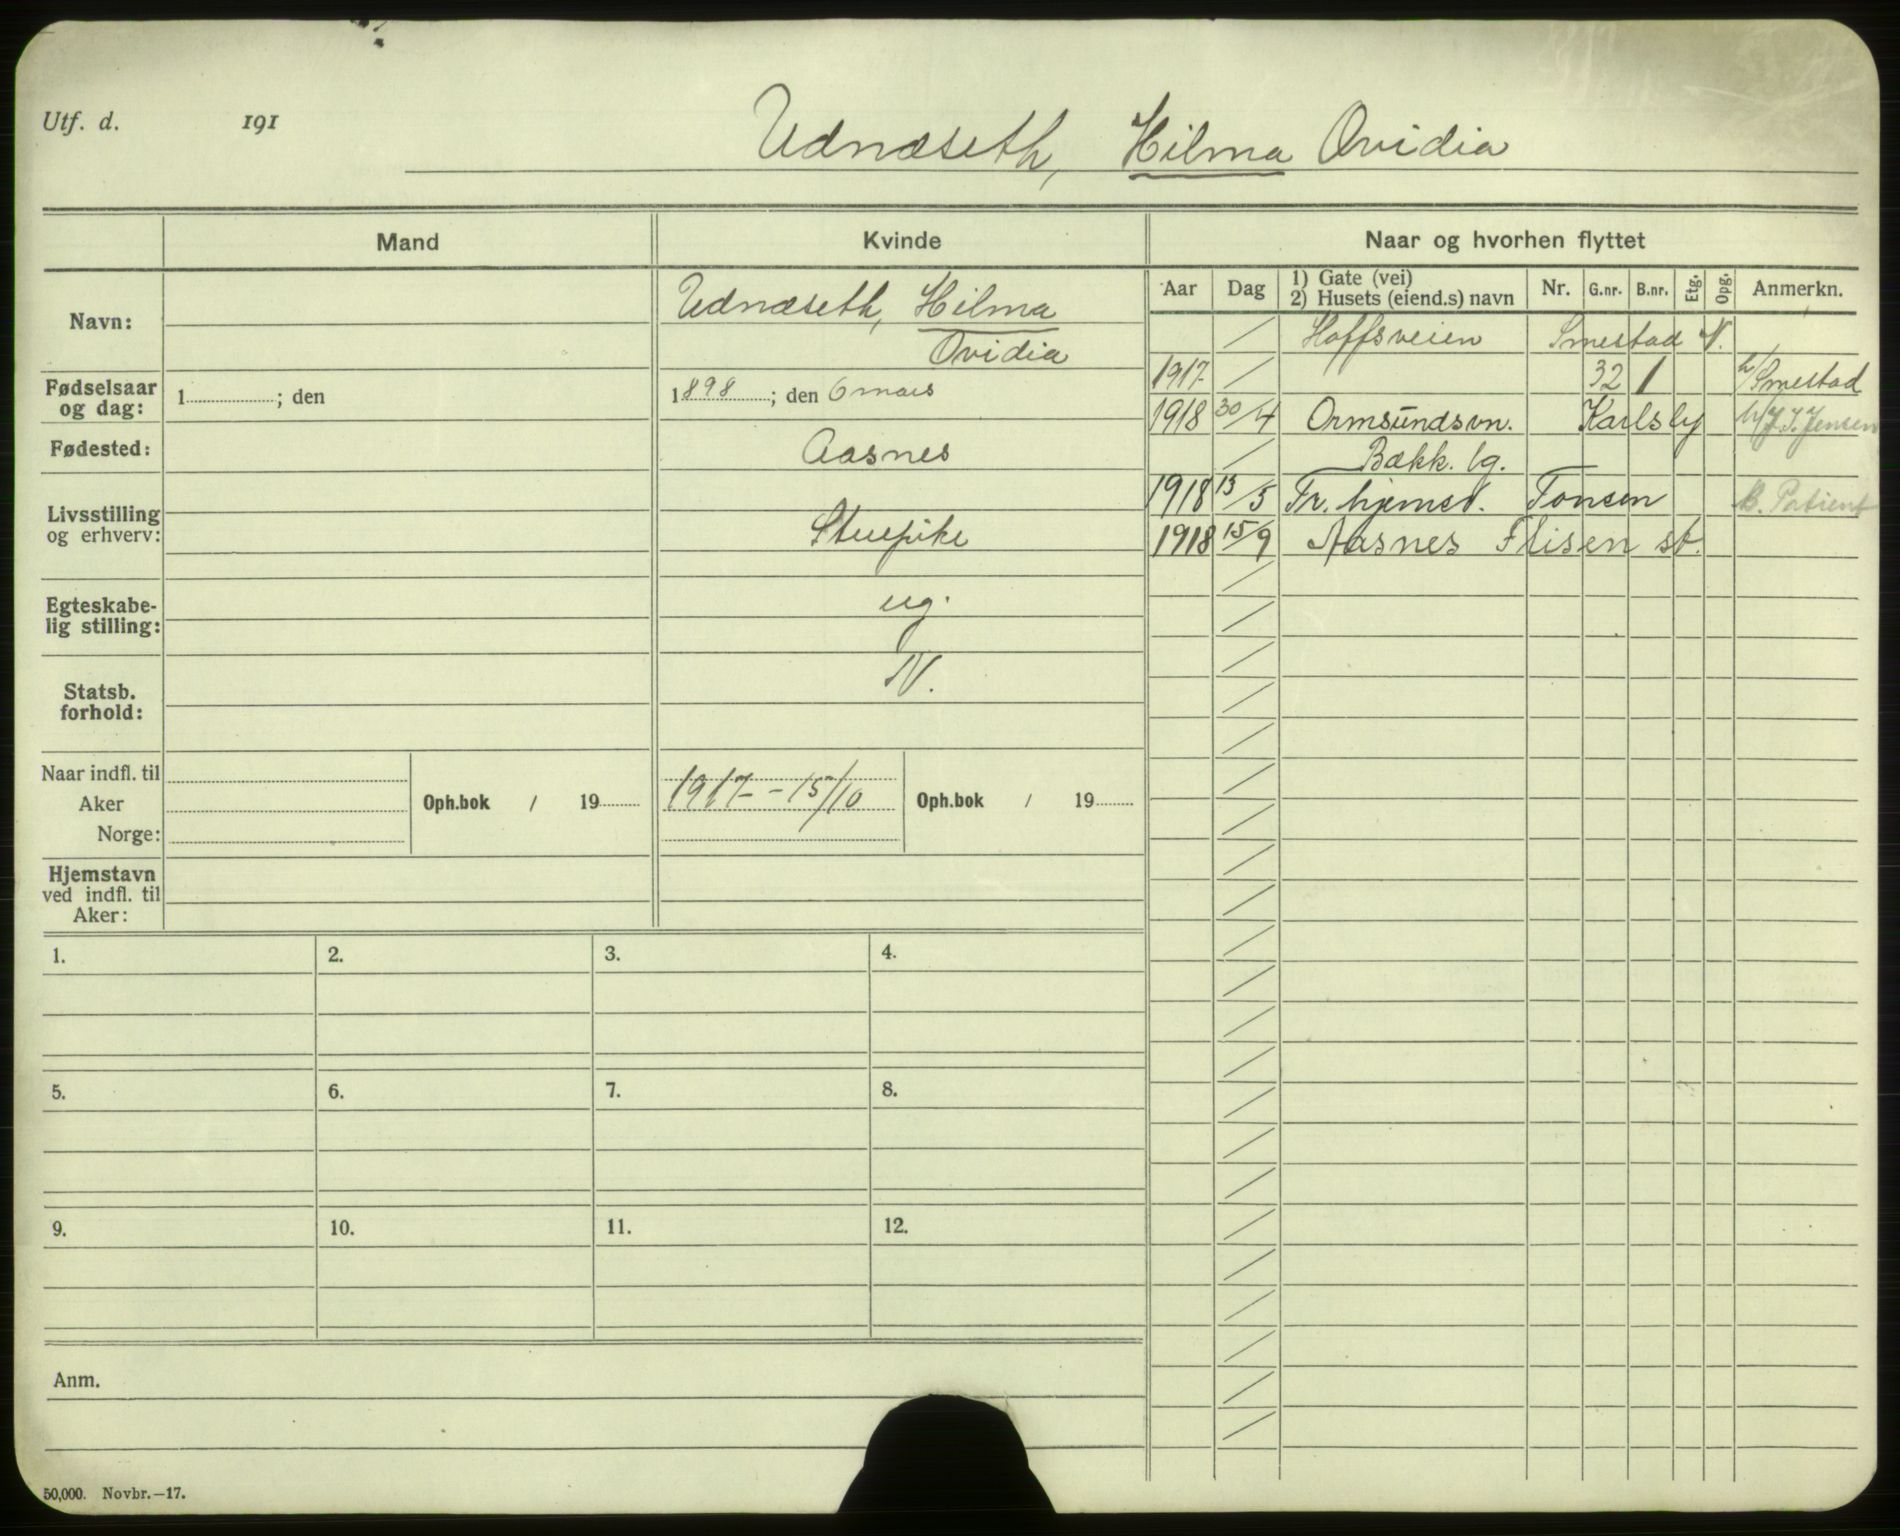 Utf. d. 191
Udnæseth, Hilma Ovidia
Mand
Kvinde
Naar og hvorhen flyttet
Navn:
Udnæseth, Hilma
Ovidia
Fødselsaar og dag:
1 ; den
1898 ; den 6 mars
Fødested:
Aasnes
Livsstilling og erhverv:
Stuepike
Egteskabe-lig stilling:
ug.
Statsb. forhold:
N.
Naar indfl. til
Aker
Norge:
Oph.bok / 19
1917 - 15/10
Oph.bok / 19
Hjemstavn
ved indfl. til
Aker:
1. 2. 3. 4.
5. 6. 7. 8.
9. 10. 11. 12.
Anm.
50,000. Novbr.—17.
Aar Dag 1) Gate (vei) 2) Husets (eiend.s) navn Nr. G.nr. B.nr. Etg. Opg. Anmerkn.
/ Hoffsveien Smestad V.
1917 / 32 1 h/Smestad
1918 30/4 Ormsundsvn. Karlsby h/J. Jensen
/ Bækk. lg.
1918 13/5 Fr. hjemsd. Tonsen B. Patient
1918 15/9 Aasnes Flisen st.